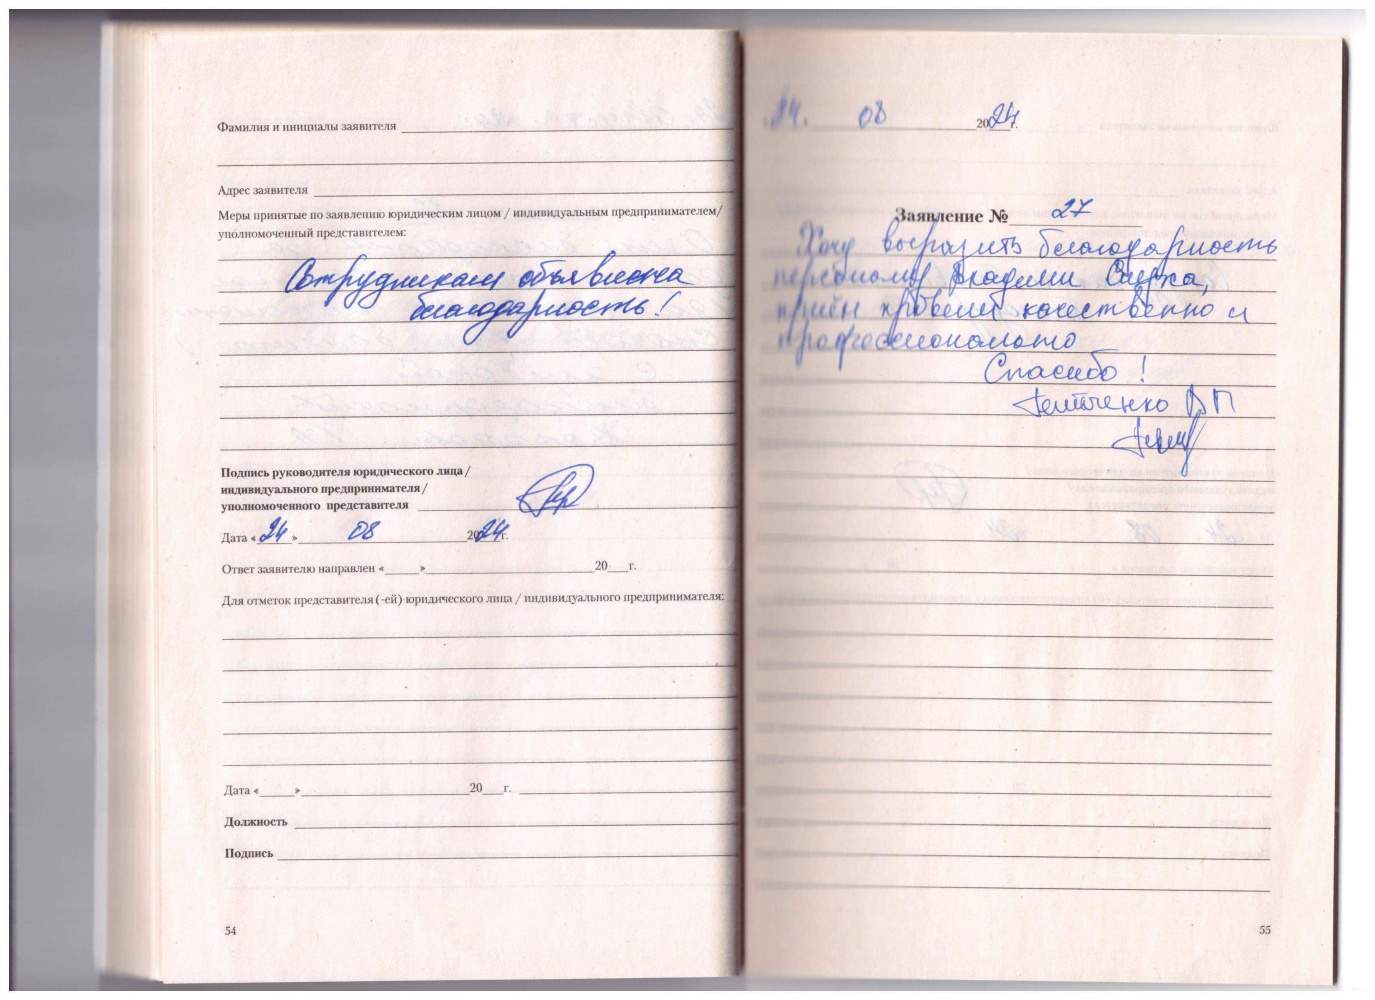 Фамилия и инициалы заявителя
Адрес заявителя
Меры принятые по заявлению юридическим лицом / индивидуальным предпринимателем/
уполномоченный представителем:
Сотрудникам объявлена
благодарность!
Подпись руководителя юридического лица /
индивидуального предпринимателя /
уполномоченного представителя
Дата «24» 08 2024г.
Ответ заявителю направлен «____»____20___г.
Для отметок представителя (-ей) юридического лица / индивидуального предпринимателя:
Дата «____»____20___г.
Должность
Подпись
54
24 08 2024г.
Заявление № 27
Хочу выразить благодарность
персоналу Академии Слуха,
приём провели качественно и
профессионально
Спасибо!
ВП
55